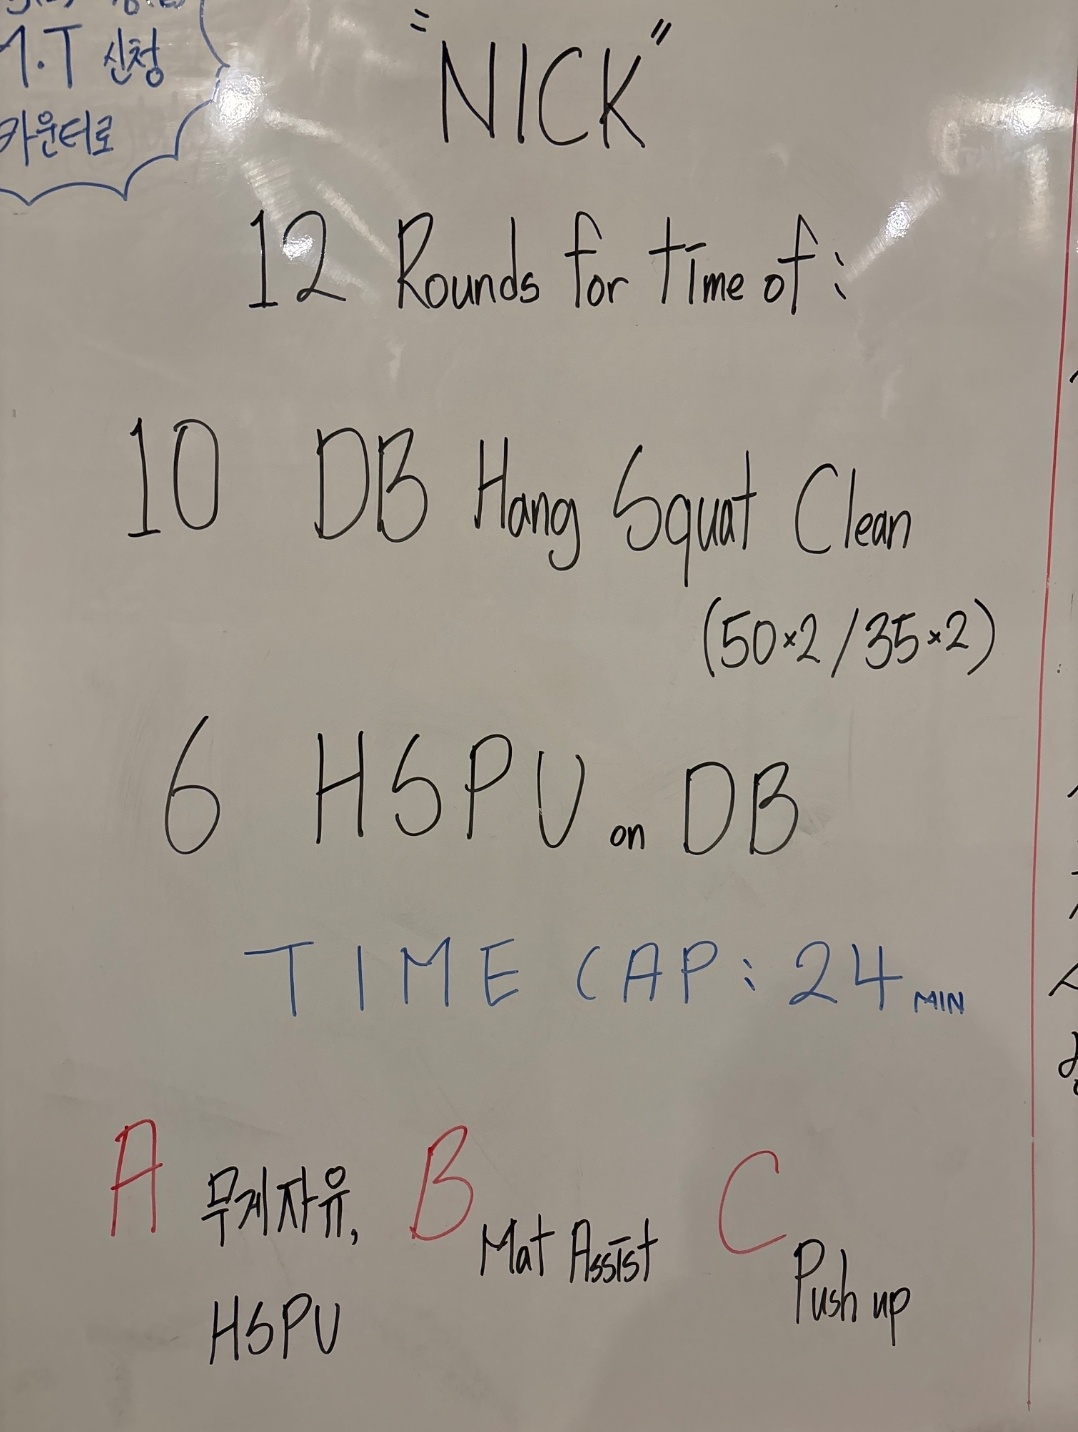 1:1 P.T 신청
카운터로
"NICK"
12 Rounds for time of:
10 DB Hang Squat Clean
(50×2/35×2)
6 HSPU on DB
TIME CAP: 24 MIN
A 무게자유, HSPU
B Mat Assist
C Push up